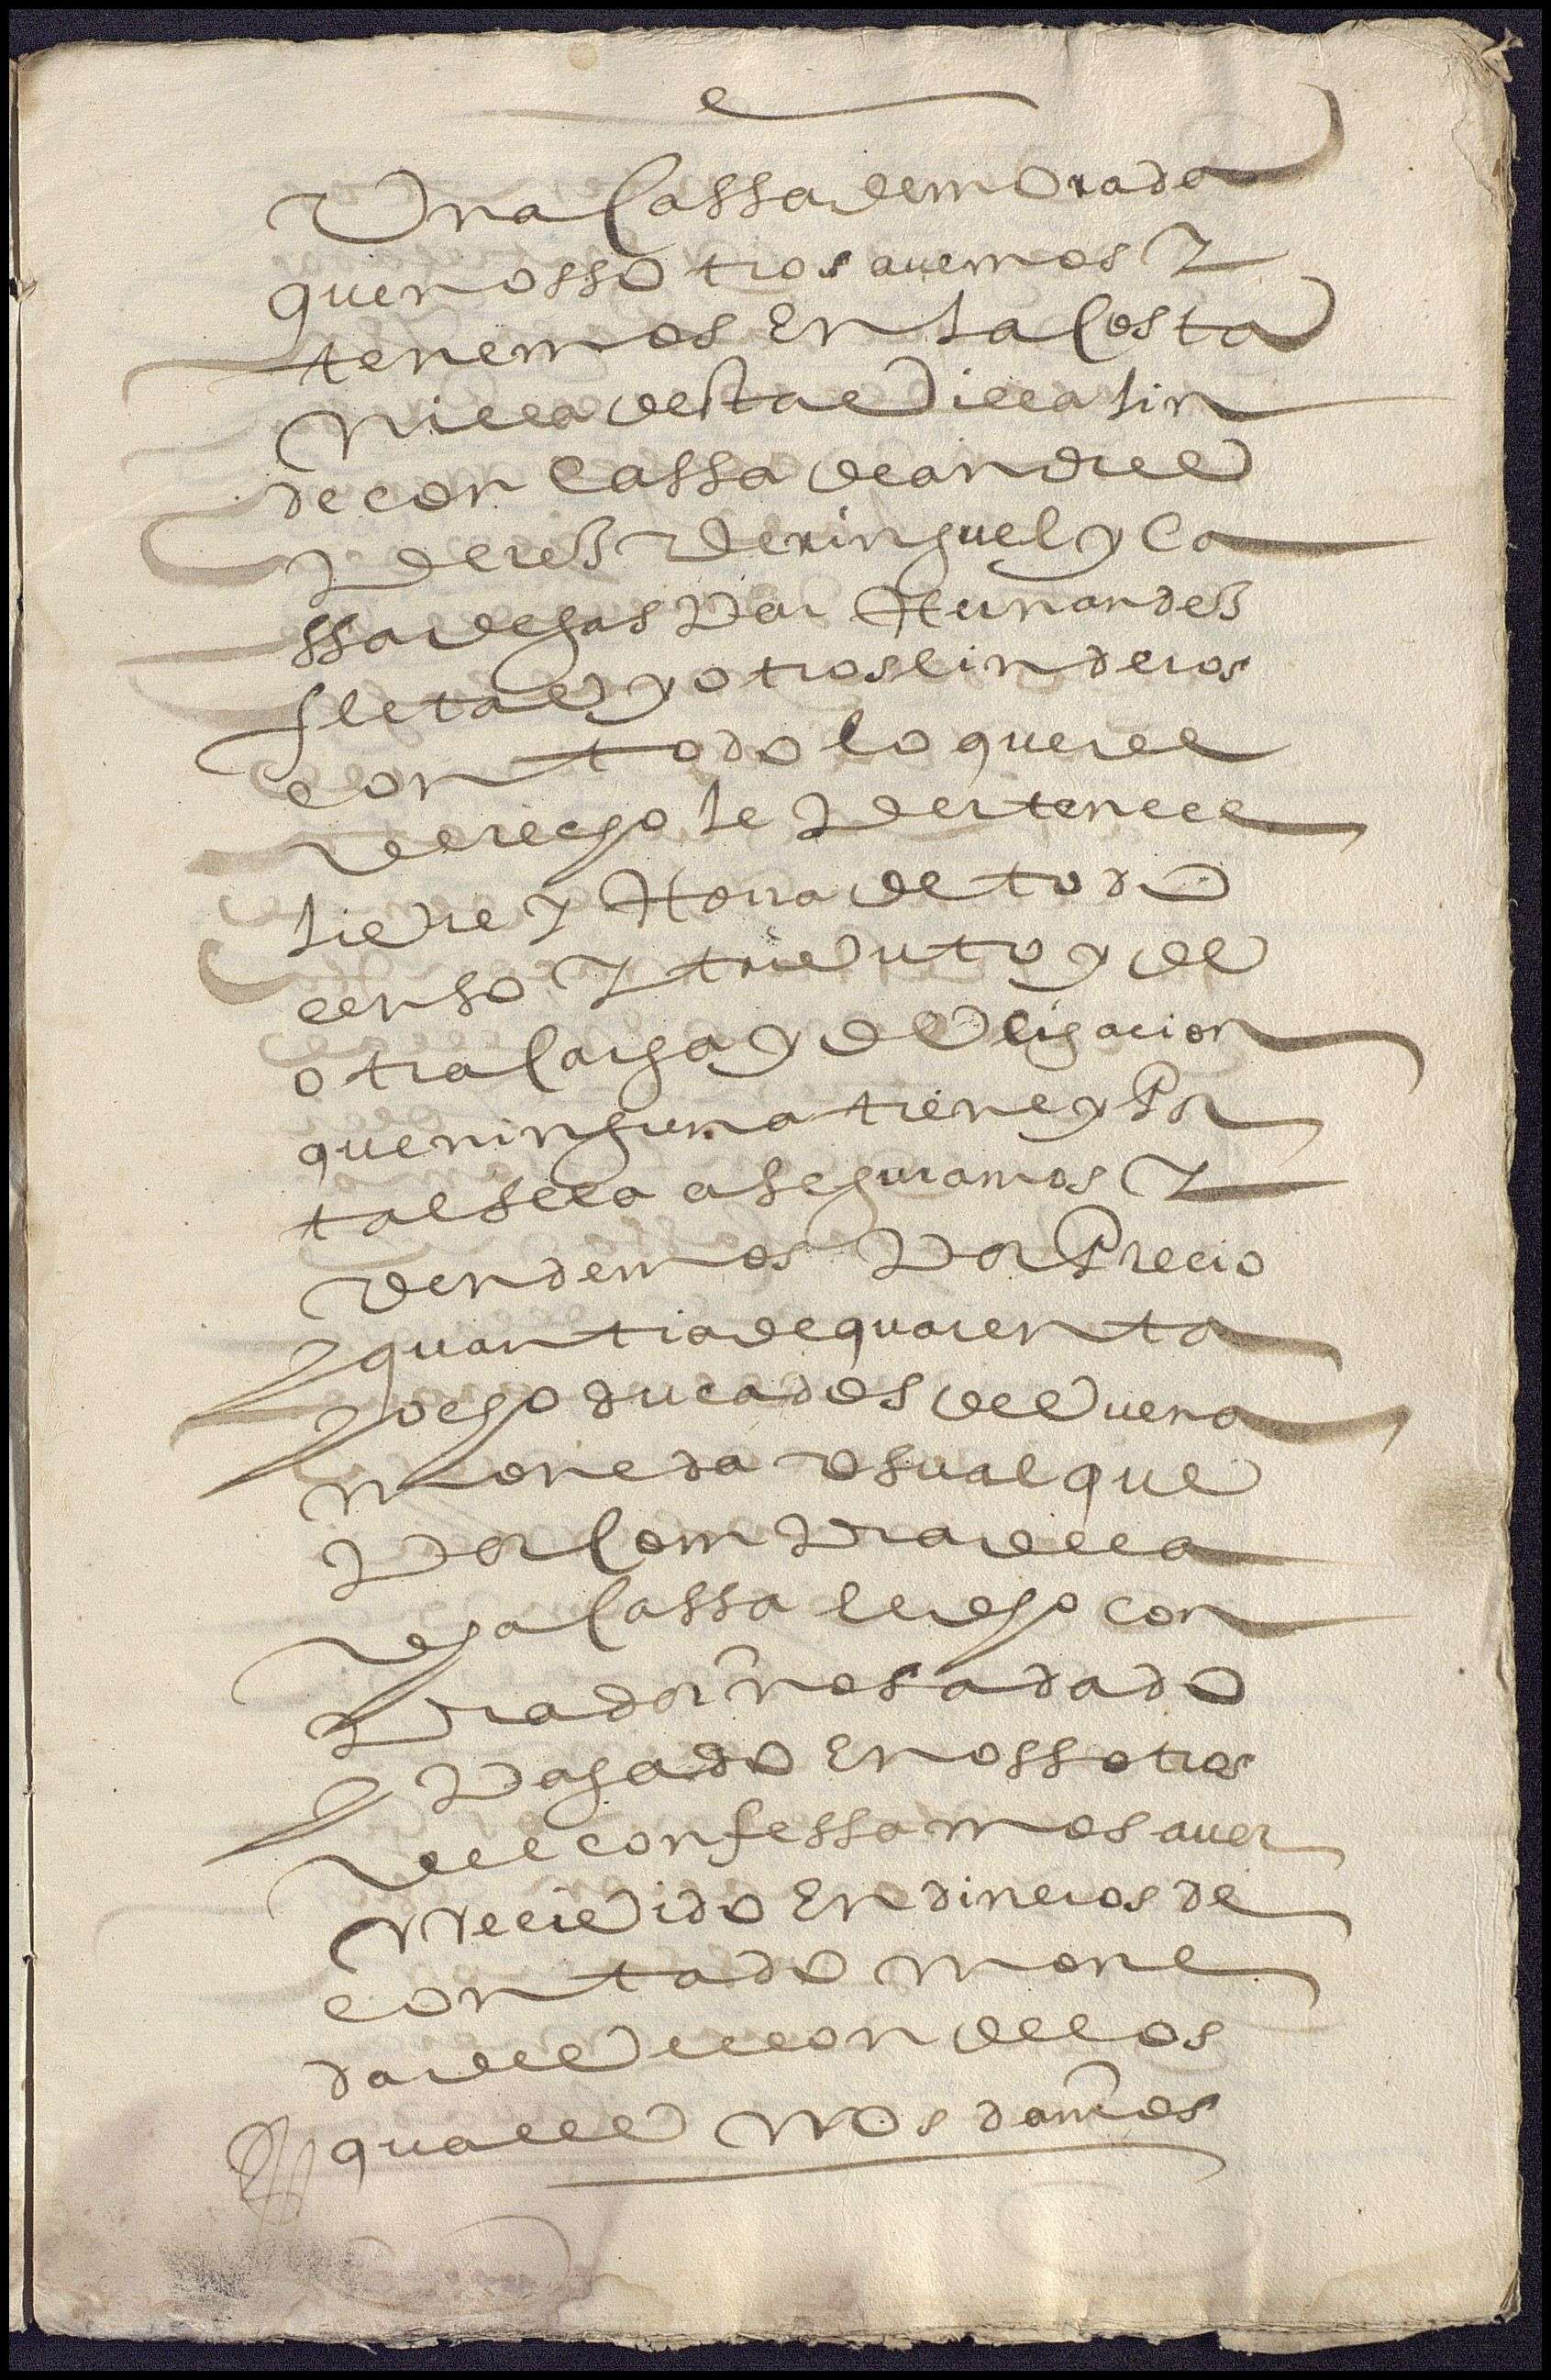 Una cassa de morada
que nossotros auemos Y
tenemos En la costa
nilla desta villa lin
de con cassa de andres
perez beringuel y ca
ssa de gaspar Hernandez
fleta y otros linderos
con todo lo que de
derecho le pertenece
libre Y Horra de todo
censo Y tributo y de
otra carga y obligacion
que ninguna tiene y Por
tal se la aseguramos Y
vendemos por Precio
y quantia de quarenta
y ocho ducados de buena
moneda usual que
por compra de la
dha cassa el dho con
prador nos a dado
y pagado E nossotros
del confessamos auer
rrecibido En dineros de
contado mone
da de vellon de los
quales nos damos